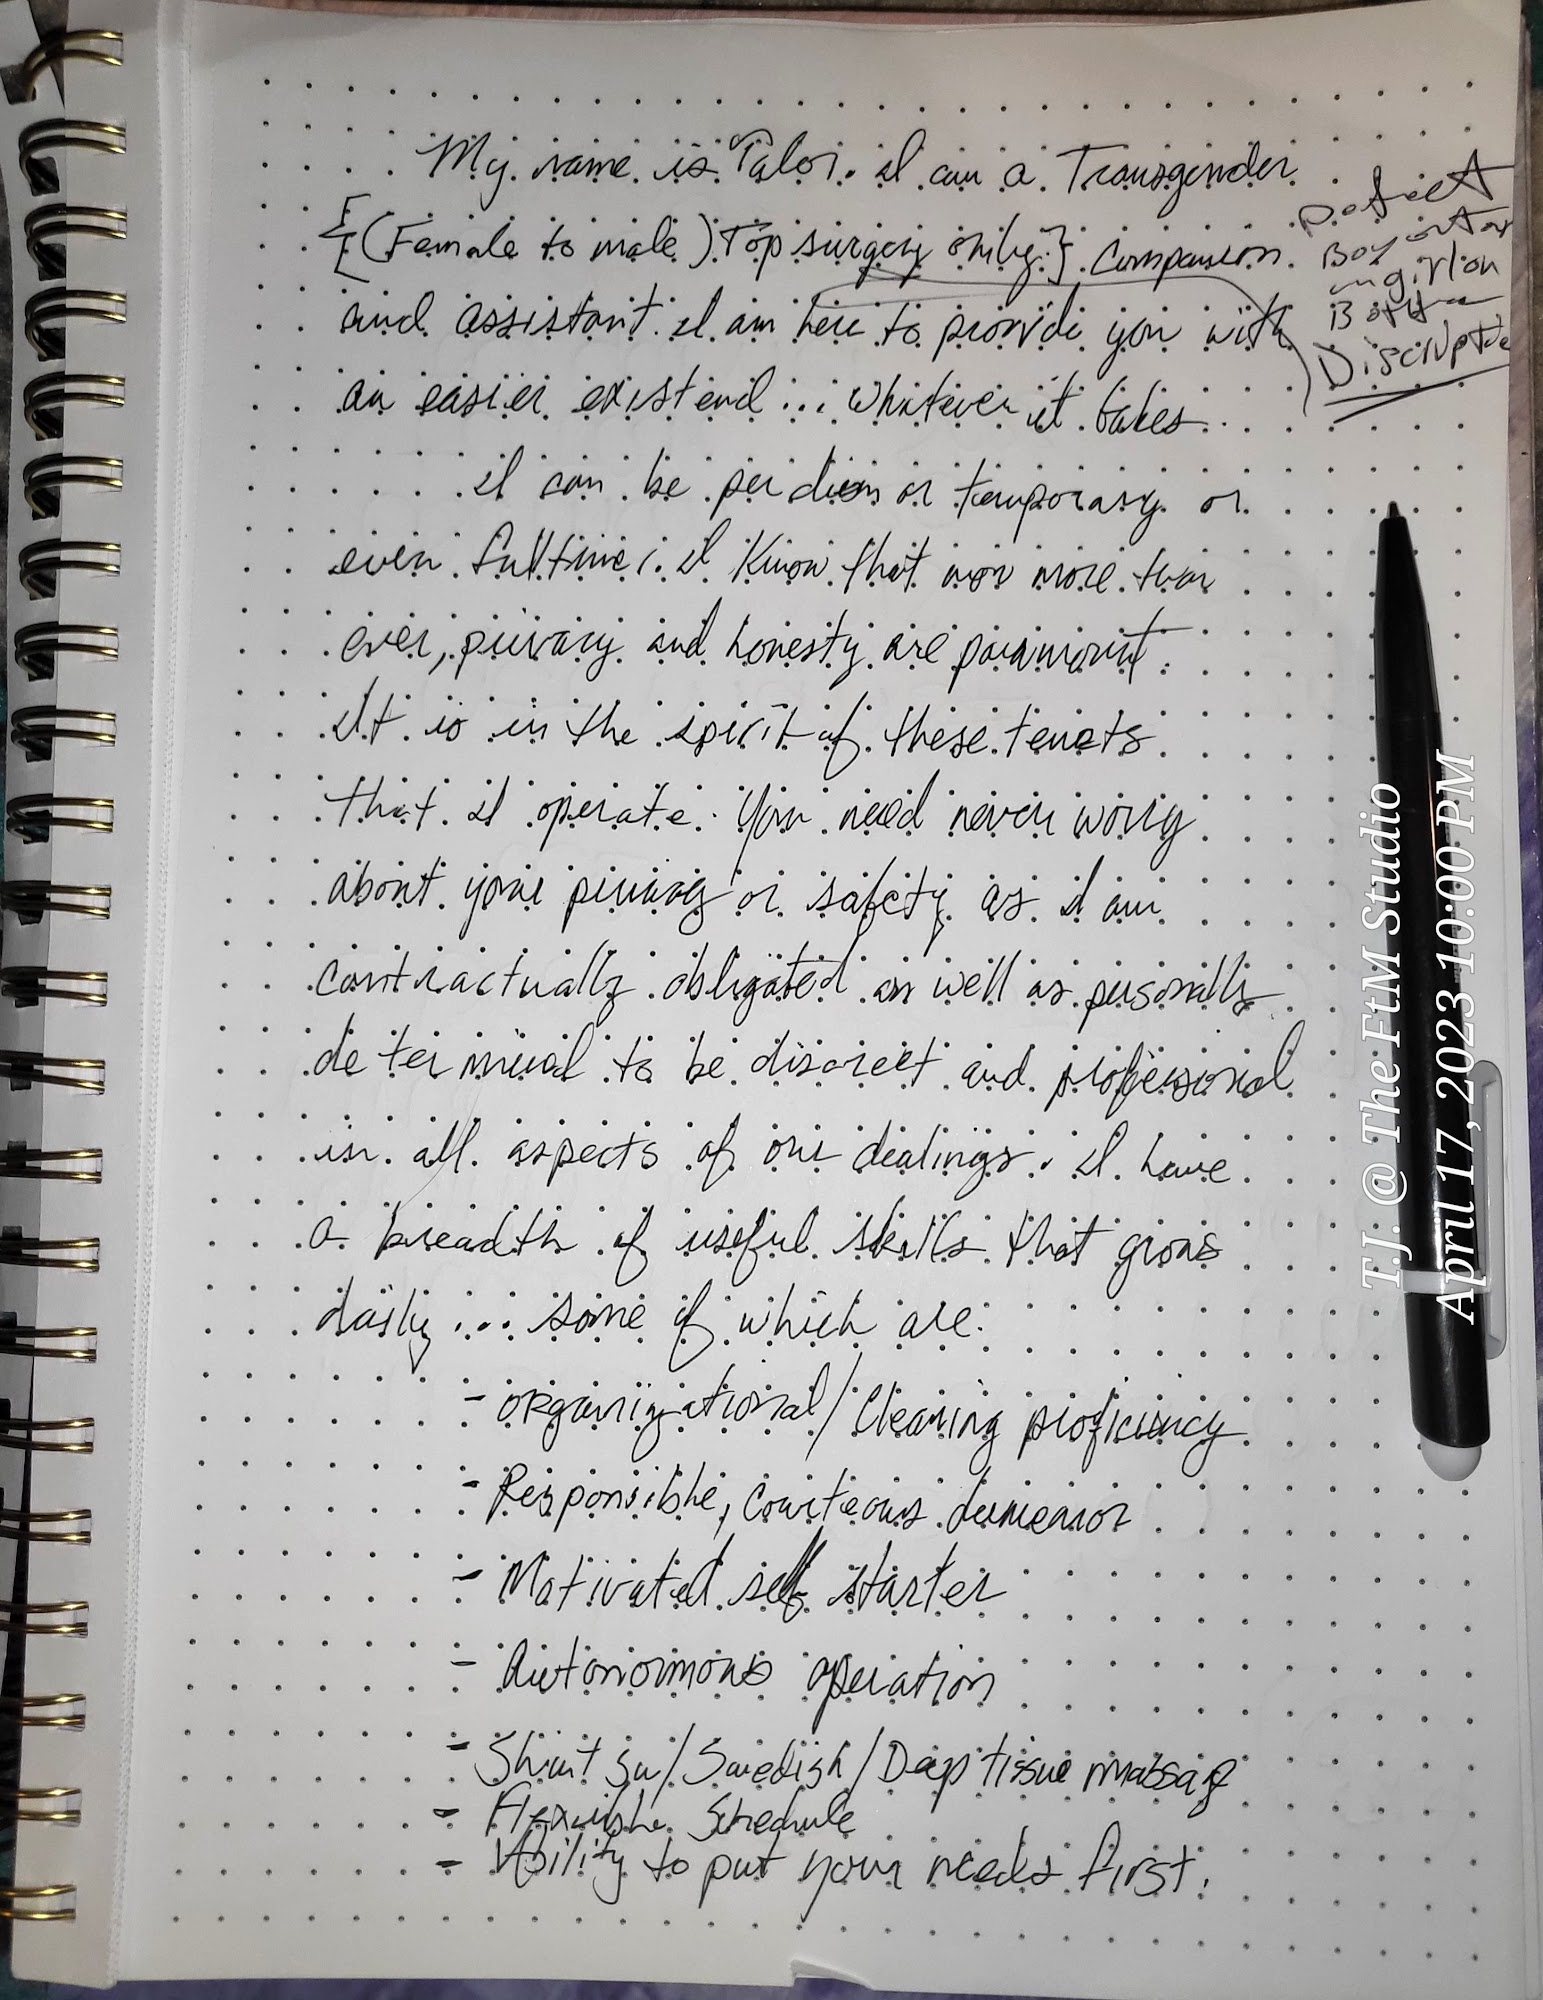 My name is Talor. I am a Transgender
{(Female to male) Top surgery only.} companion
and assistant. I am here to provide you with
an easier existend... whatever it takes...
I can be per diem or temporary or
even fulltime. I know that now more than
ever, privacy and honesty are paramount.
It is in the spirit of these tenets
that I operate. You need never worry
about your privacy or safety as I am
contractually obligated as well as personally
determined to be discreet and professional
in all aspects of our dealings. I have
a breadth of useful skills that grows
daily... some of which are:
- organizational/Cleaning proficiency
- Responsible, courteous demeanor
- Motivated self starter
- Autonomous operation
- Shiatsu/Swedish/Deep tissue massage
- Flexible Schedule
- Ability to put your needs first.
Perfect
Boy
girl on
Bottom
Discriptive
T.J. @ The FtM Studio
April 17, 2023 10:00 PM